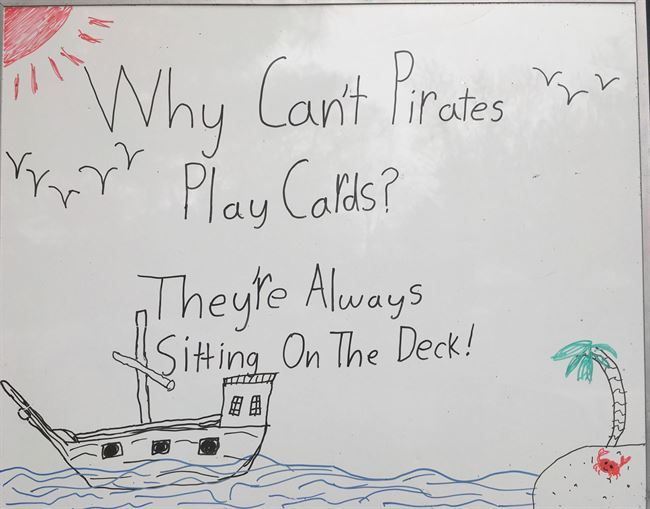 Why Can't Pirates
Play Cards?
They're Always
Sitting On The Deck!